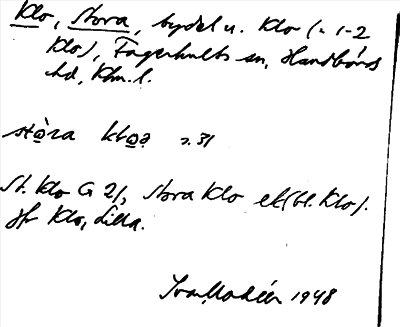 Klo, Stora, bydel u. Klo (= 1-2
Klo), Fagerhults sn, Handbörds
hd, Klm. l.
stọ̀ra klọə s. 31
St. Klo G 21, Stora Klo ek (bl. Klo).
Jfr Klo, Lilla.
Ivar Modéer 1948